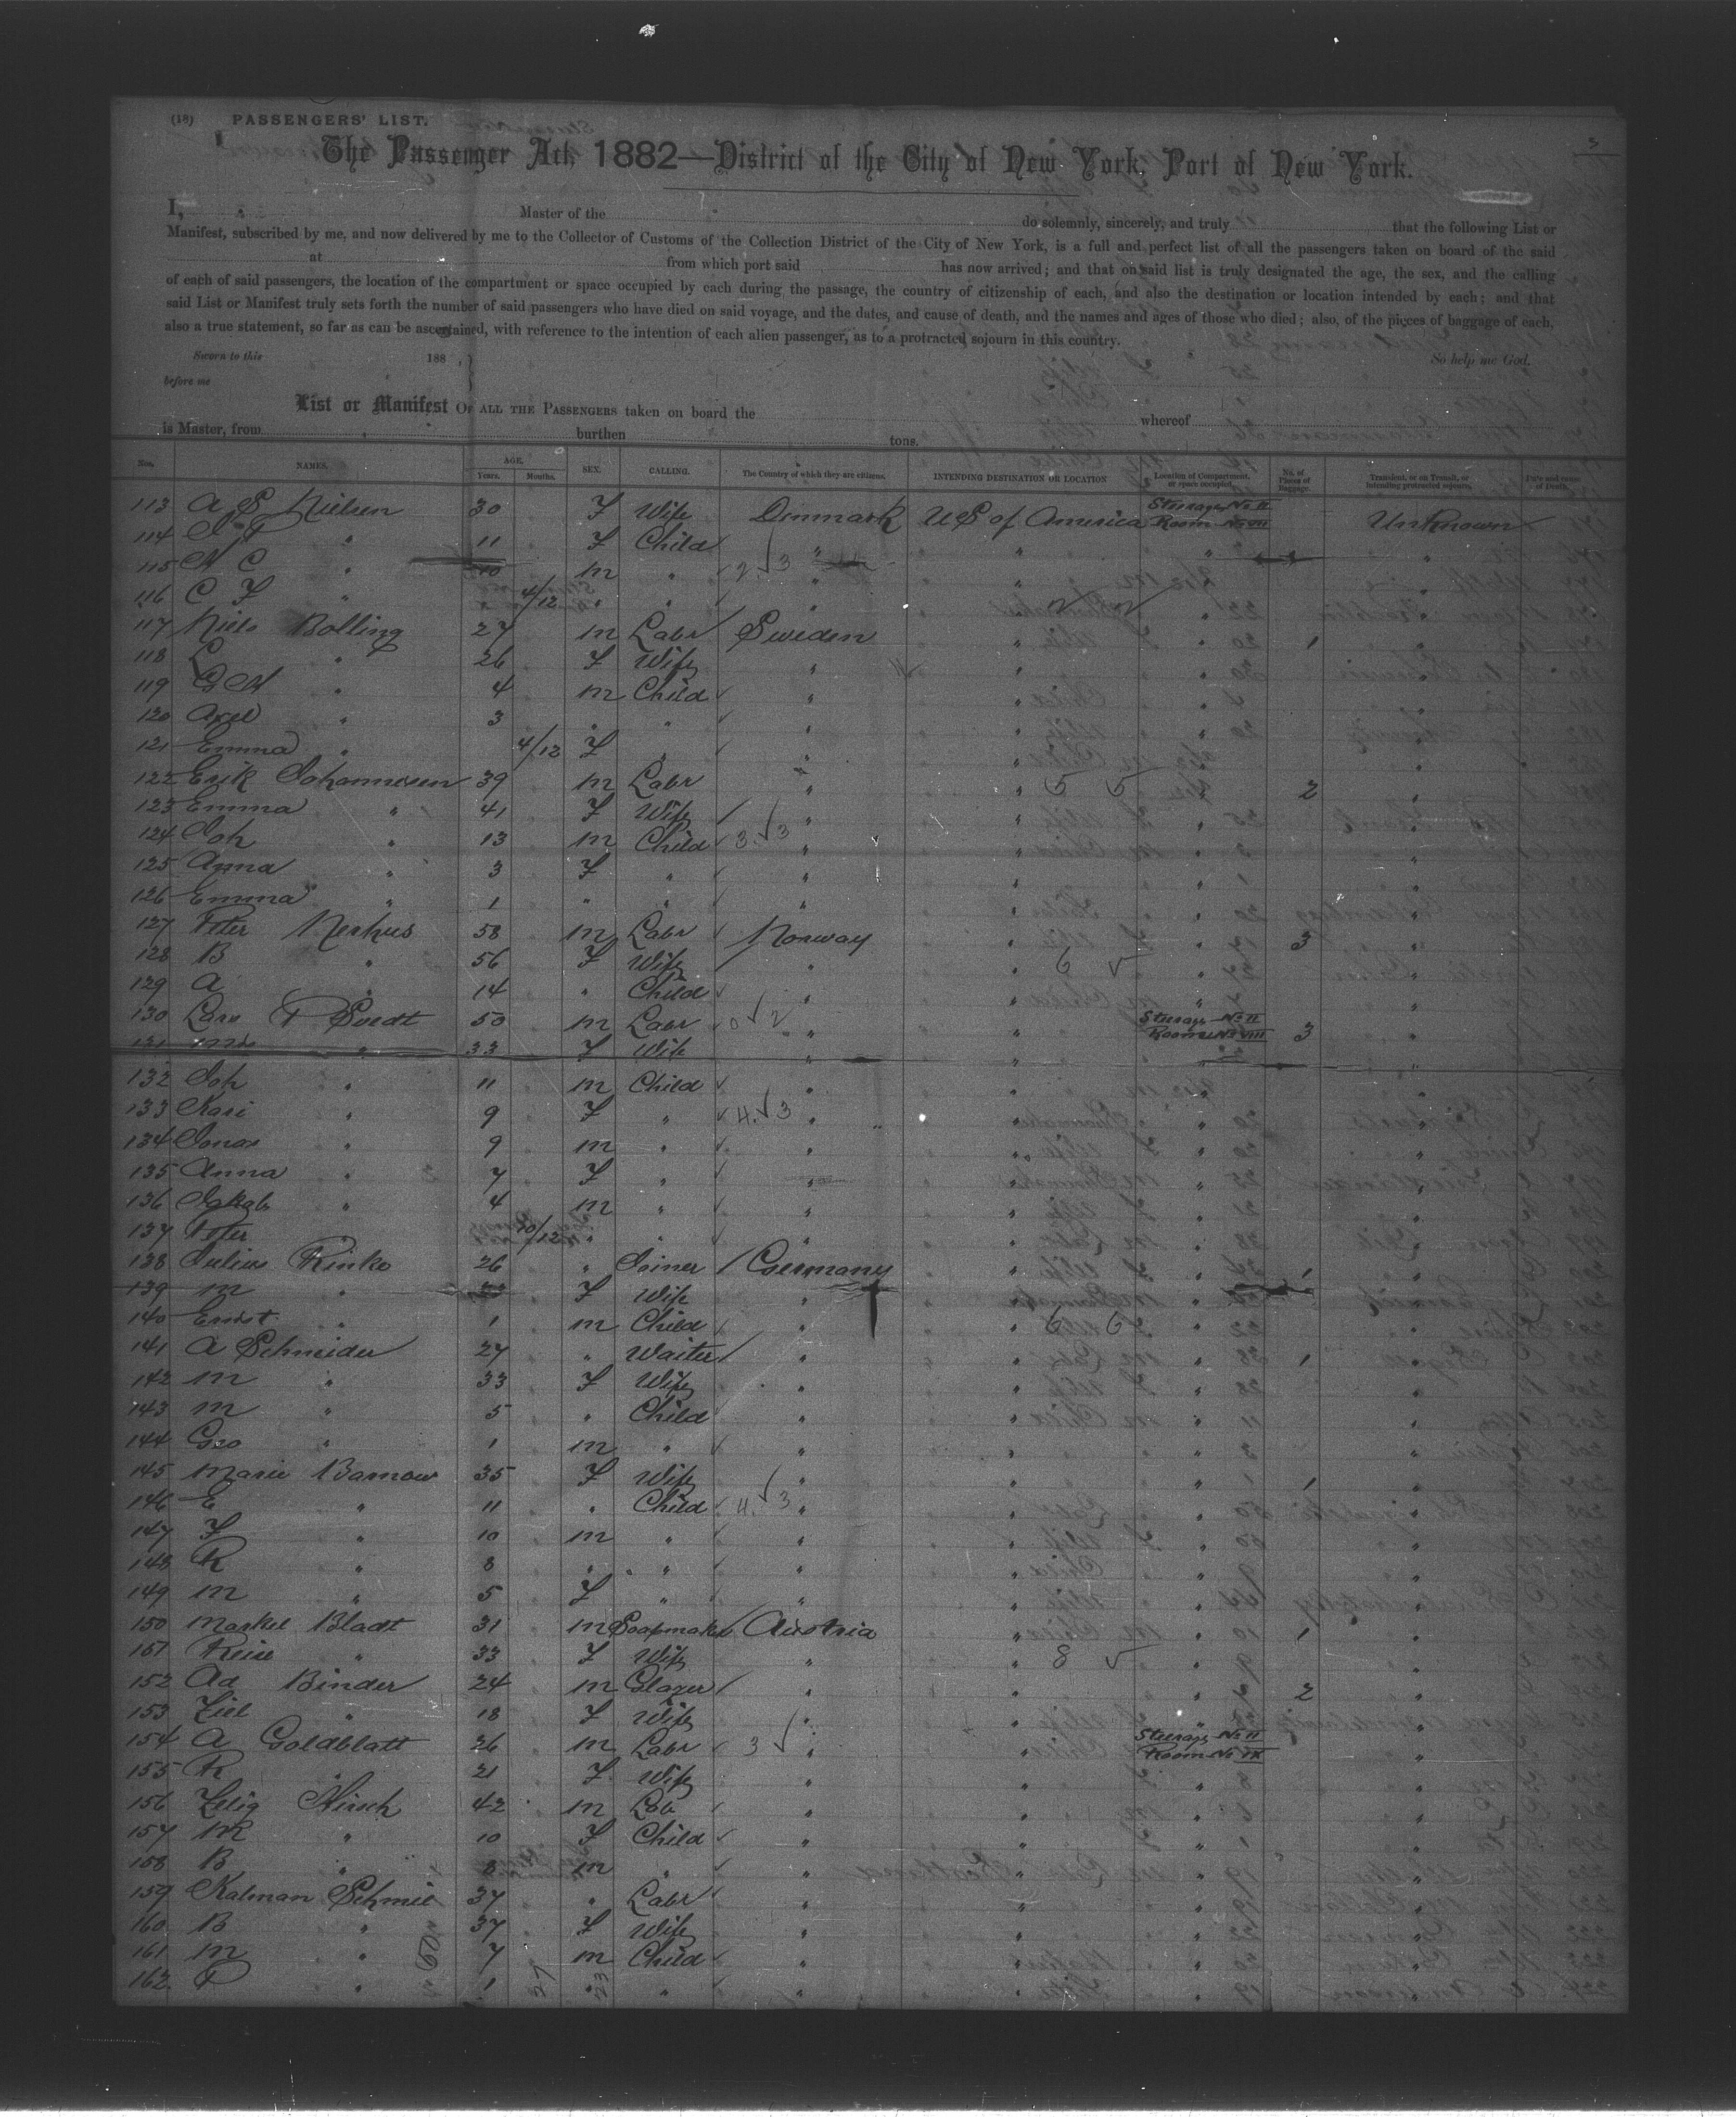 (18) PASSENGERS' LIST.
3
The Passenger Act, 1882—District of the City of New York, Port of New York.
I, Master of the do solemnly, sincerely, and truly that the following List or
Manifest, subscribed by me, and now delivered by me to the Collector of Customs of the Collection District of the City of New York, is a full and perfect list of all the passengers taken on board of the said
at from which port said has now arrived; and that on said list is truly designated the age, the sex, and the calling
of each of said passengers, the location of the compartment or space occupied by each during the passage, the country of citizenship of each, and also the destination or location intended by each; and that
said List or Manifest truly sets forth the number of said passengers who have died on said voyage, and the dates, and cause of death, and the names and ages of those who died; also, of the pieces of baggage of each,
also a true statement, so far as can be ascertained, with reference to the intention of each alien passenger, as to a protracted sojourn in this country.
Sworn to this 188 So help me God.
before me
List or Manifest OF ALL THE PASSENGERS taken on board the whereof
is Master, from burthen tons.
Nos. NAMES. AGE. Years. Months. SEX. CALLING. The Country of which they are citizens. INTENDING DESTINATION OR LOCATION Location of Compartment, or space occupied. No. of Pieces of Baggage. Transient, or on Transit, or intending protracted sojourn. Date and cause of Death.
113 A S Nielsen 30 F Wife Denmark U S of America Steerage No II Room No VII Unknown
114 " 11 F Child " " " "
115 N C " 10 m " 2 √ 3 " " "
116 C F " 4/12 " " " " "
117 Niels Bolling 27 m Labr Sweden " " 1 "
118 " 26 F Wife " " " "
119 G N " 4 m Child " " " "
120 Axel " 3 " " " " " "
121 Emma " 4/12 F " " " " "
122 Erik Johannesen 39 m Labr " " 5 5 " 2 "
123 Emma " 41 F Wife " " " "
124 Joh " 13 m Child 3 √ 3 " " " "
125 Anna " 3 F " " " " "
126 Emma " 1 " " " " " "
127 Peter Nerhus 58 m Labr Norway " " 3 "
128 B " 56 F Wife " " 6 √ " "
129 A " 14 " Child " " " "
130 Lars P Svedt 50 m Labr 0 √ 2 " " Steerage No II Room No VIII 3 "
131 " 33 F Wife " " " "
132 Joh " 11 m Child " " " "
133 Kari " 9 F " 4 √ 3 " " " "
134 Jonas " 9 m " " " " "
135 Anna " 7 F " " " " "
136 Jakob " 4 m " " " " "
137 Peter 10/12 " " " " " "
138 Julius Rinko 26 " Joiner Germany " " 1 "
139 m " F Wife " " " "
140 Ernst " 1 m Child " " 6 6 " "
141 A Schneider 27 " Waiter " " " 1 "
142 m " 33 F Wife " " " "
143 m " 5 " Child " " " "
144 Geo " 1 m " " " " "
145 Marie Barnow 35 F Wife " " " 1 "
146 E " 11 " Child 4 √ 3 " " " "
147 F " 10 m " " " " "
148 R " 8 " " " " " "
149 m " 5 F " " " " "
150 Markel Bladt 31 m Soapmaker Austria " " 1 "
151 Reise " 33 F Wife " " 8 √ " "
152 Ad Binder 24 m Glazer " " " 2 "
153 " 18 F Wife " " " "
154 A Goldblatt 26 m Labr 3 √ " " Steerage No II Room No IX "
155 R " 21 F Wife " " " "
156 Zelig Hirsch 42 m Lab " " " "
157 M " 10 F Child " " " "
158 B " 8 m " " " " "
159 Kalman Schmie 37 " Labr " " " "
160 B " 37 F Wife " " " "
161 m " 7 m Child " " " "
162 P 1 " " " " " "
50 27 23